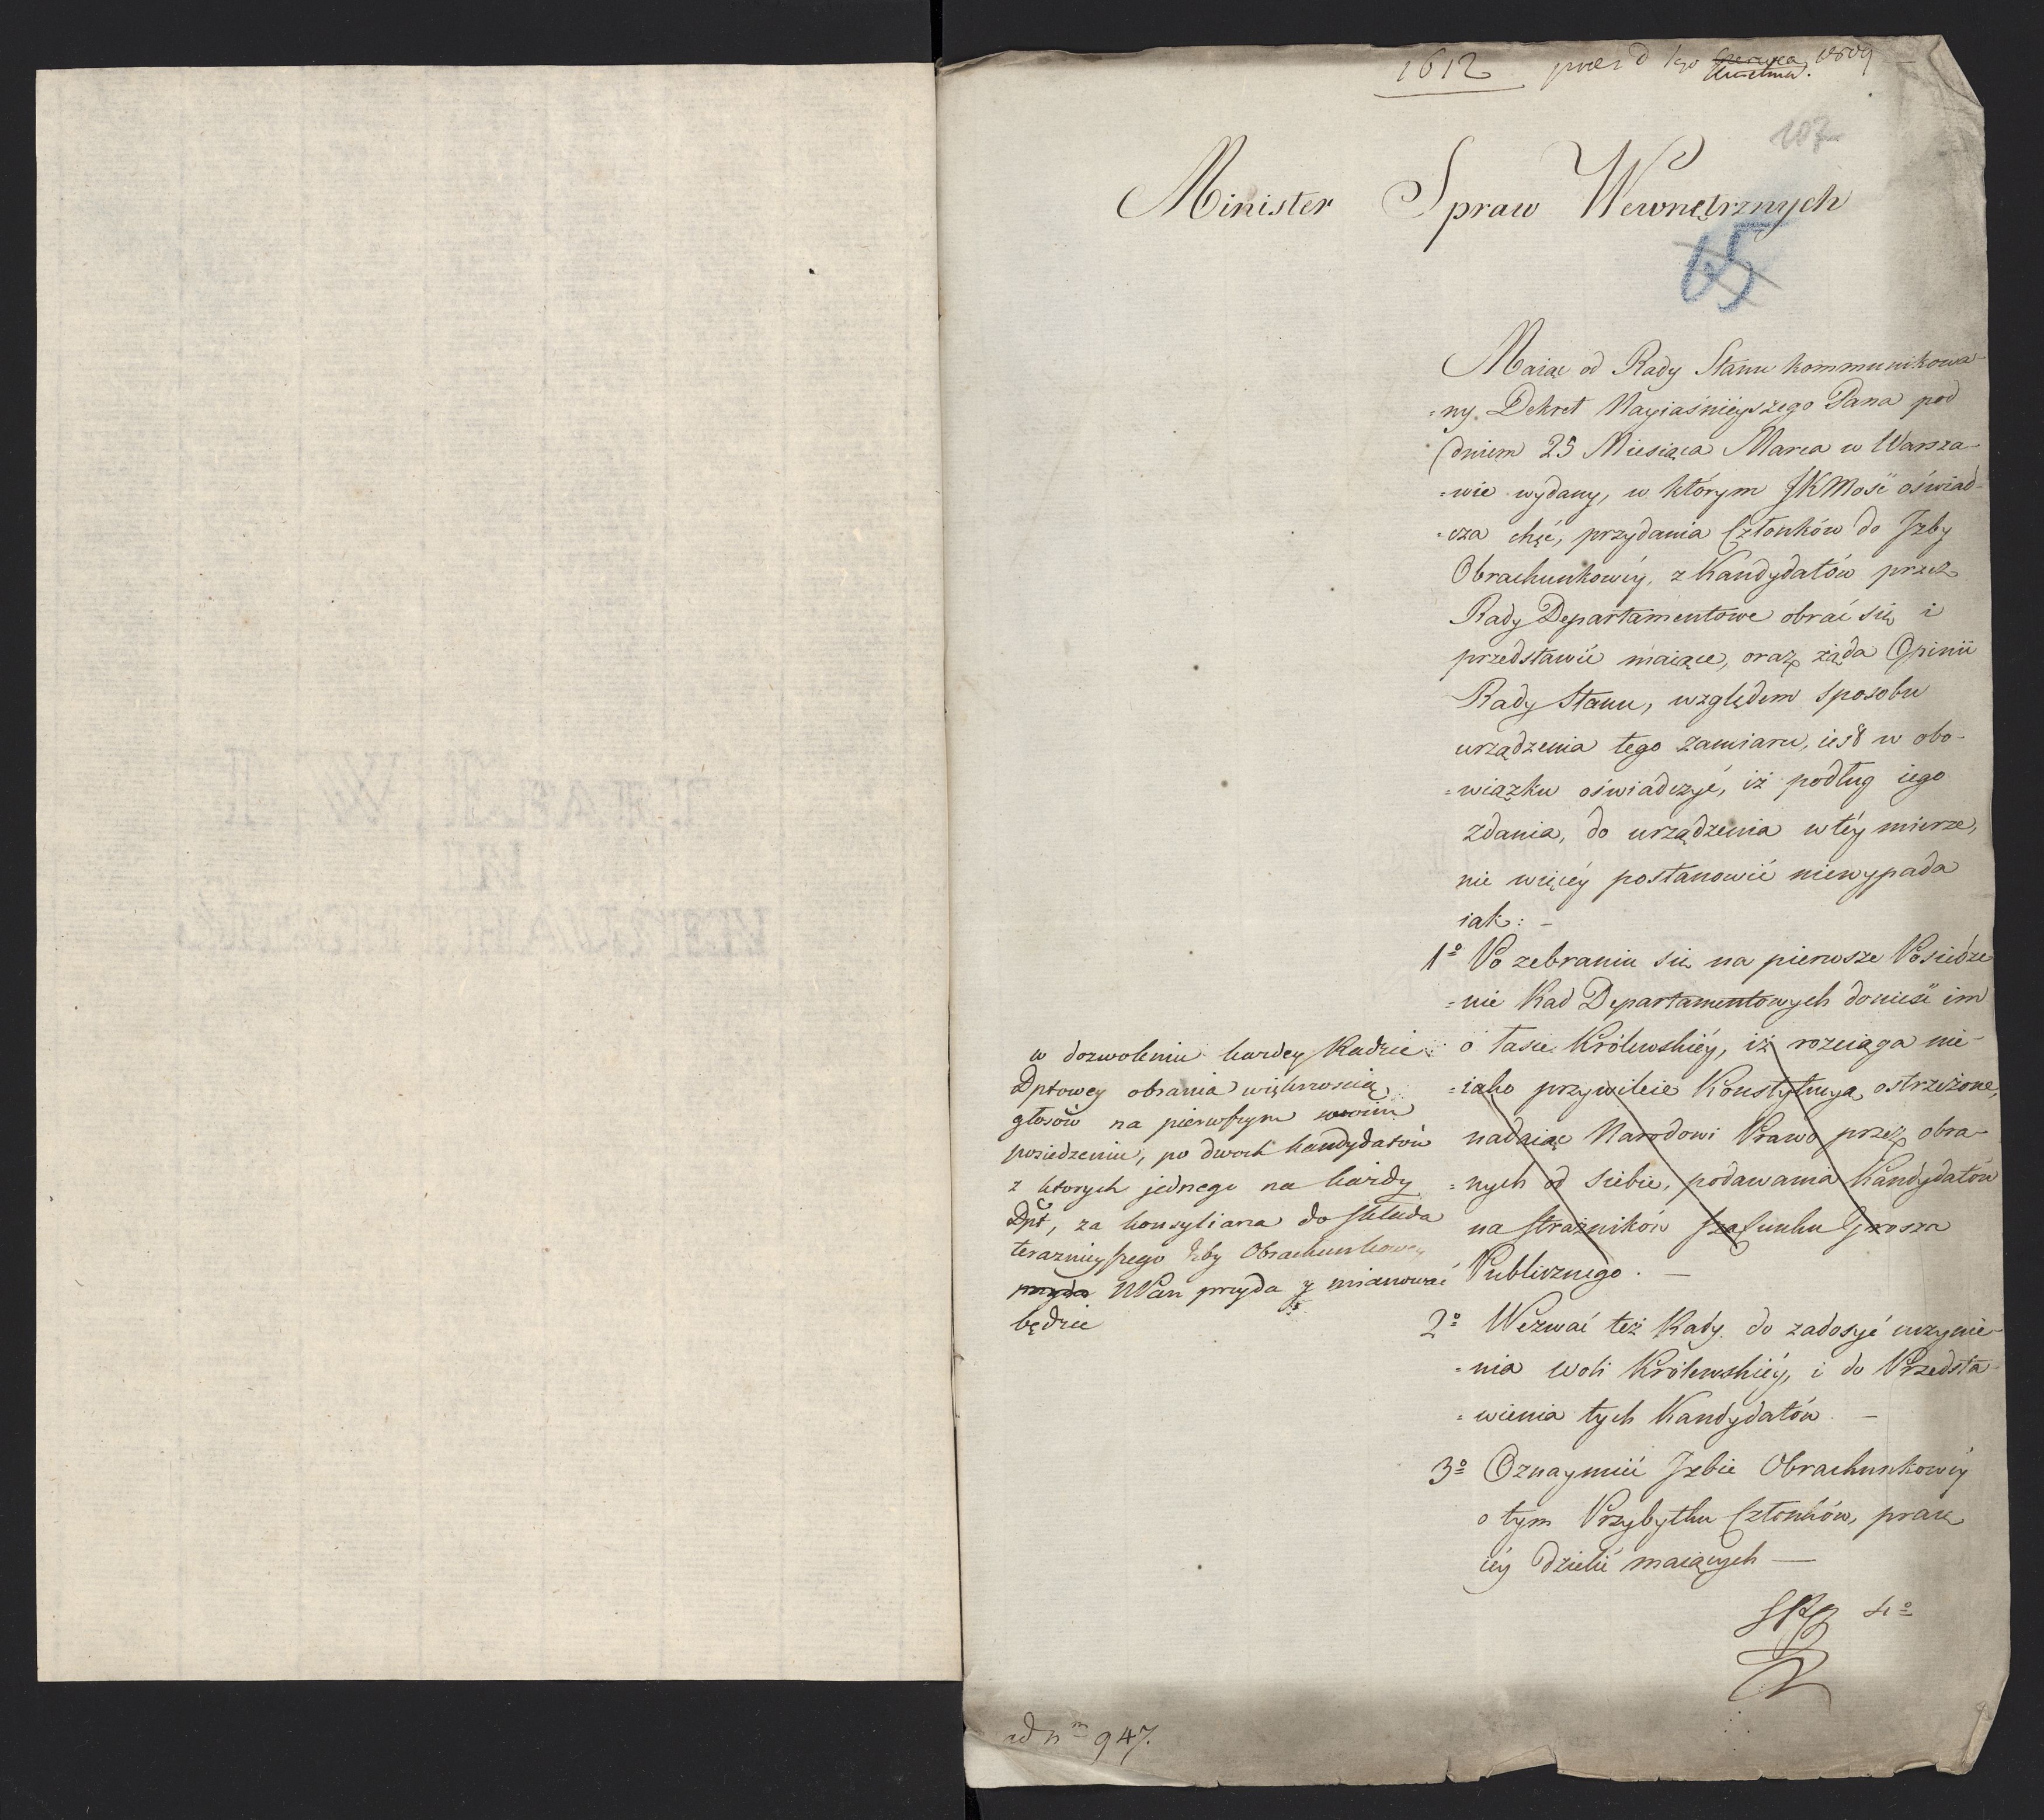 1612 præs d 1go Czerwca Kwietnia. 1809
107
Minister Spraw Wewnętrznych
65
Maiąc od Rady Stanu kommunikowa-
=ny Dekret Nayiaśniéyszego Pana pod
dniem 25 Miesiąca Marca w Warsza-
=wie wydany, w którym JKMość oświad-
=cza chęć, przydania Członków do Jzby
Obrachunkowéy, z Kandydatów przez
Rady Departamentowe obrać się i
przedstawić maiące, oraz żąda Opinii
Rady Stanu, względem sposobu
urządzenia tego zamiaru, iest w obo-
=wiązku oświadczyć, iż podług iego
zdania, do urządzenia w téy mierze,
nie więcéy postanowić niewypada
iak: -
1º Po zebraniu się na pierwsze Posiedze
=nie Rad Departamentowych donieść im
o łasce Królewskiéy, iż rozciąga nie-
=iako przywileie Konstytucyą ostrzeżone,
nadaiąc Narodowi Prawo przez obra-
=nych od siebie, podawania Kandydatów
na Strażników Szafunku Grosza
Publicznego. -
w dozwoleniu kazdey Radzie
Dptowey obrania większoscią
głosów na pierwszym swoim
posiedzeniu, po dwoch kandydatów
z ktorych jednego na każdy
Dpt, za konsyliarza do składu
terazniejszego Jzby Obrachunkowey
przyda NPan przyda y mianować
będzie
2º Wezwać też Rady do zadosyć uczynie-
=nia woli Królewskiéy, i do Przedsta-
=wienia tych Kandydatów. -
3º Oznaymić Jzbie Obrachunkowéy
o tym Przybytku Członków, pracę
iéy dzielić maiących -
4º
ad Nm 947.